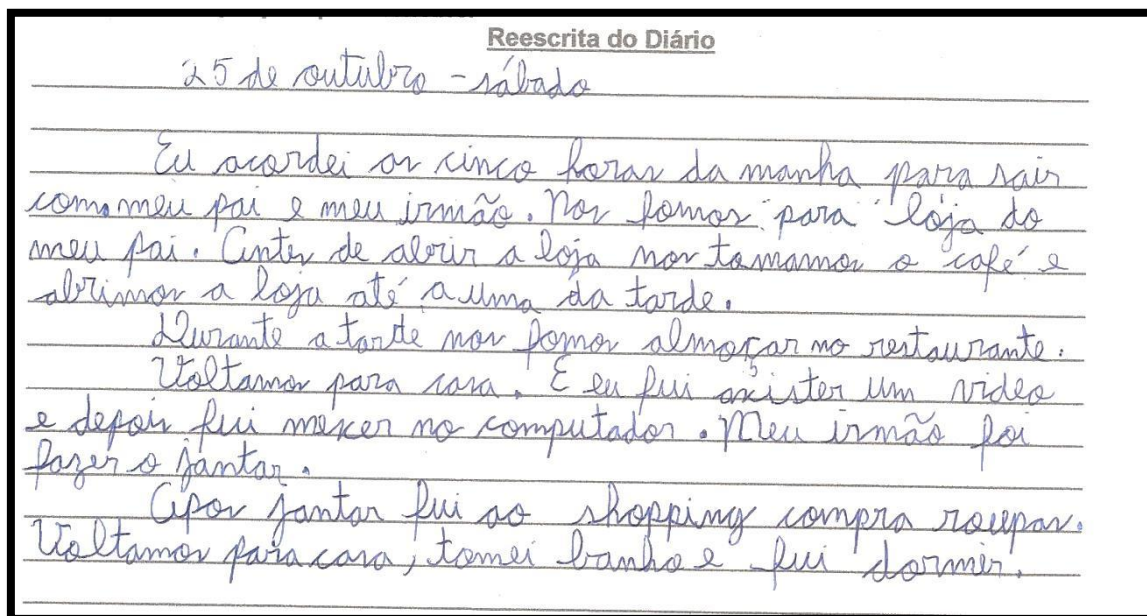 Reescrita do Diário
25 de outubro - sábado
Eu acordei as cinco horas da manha para sair
com meu pai e meu irmão. Nos fomos para loja do
meu pai. Antes de abrir a loja nos tomamos o café e
abrimos a loja até a uma da tarde.
Durante a tarde nos fomos almoçar no restaurante.
Voltamos para casa. E eu fui axister um video
e depois fui mexer no computador. Meu irmão foi
fazer o jantar.
Apos jantar fui ao shopping compra roupas.
Voltamos para casa, tomei banho e fui dormir.